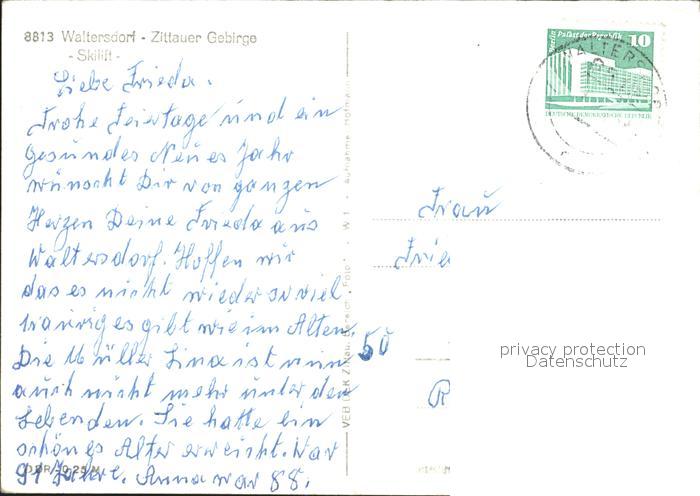 8813 Waltersdorf - Zittauer Gebirge
- Skilift -
Liebe Frieda.
Frohe Feiertage und ein
gesundes Neues Jahr
wünscht Dir von ganzen
Herzen Deine Frieda aus
Waltersdorf. Hoffen wir
das es nicht wieder so viel
trauriges gibt wie im Alten.
Die Müller Lina ist nun
auch nicht mehr unter den
Lebenden. Sie hatte ein
schönes Alter erreicht. War
91 Jahre. Anna war 88.
Berlin Palast der Republik 10
DEUTSCHE DEMOKRATISCHE REPUBLIK
WALTERS
Frau
Frie
50
R
privacy protection
Datenschutz